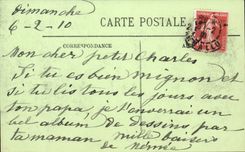 Dimanche
6-2-10
CARTE POSTALE
CORRESPONDANCE
Mon cher petit Charles
Si tu es bien mignon et
si tu lis tous les jours avec
ton papa, je t'enverrai un
bel album de dessins par
ta maman mille baisers
de